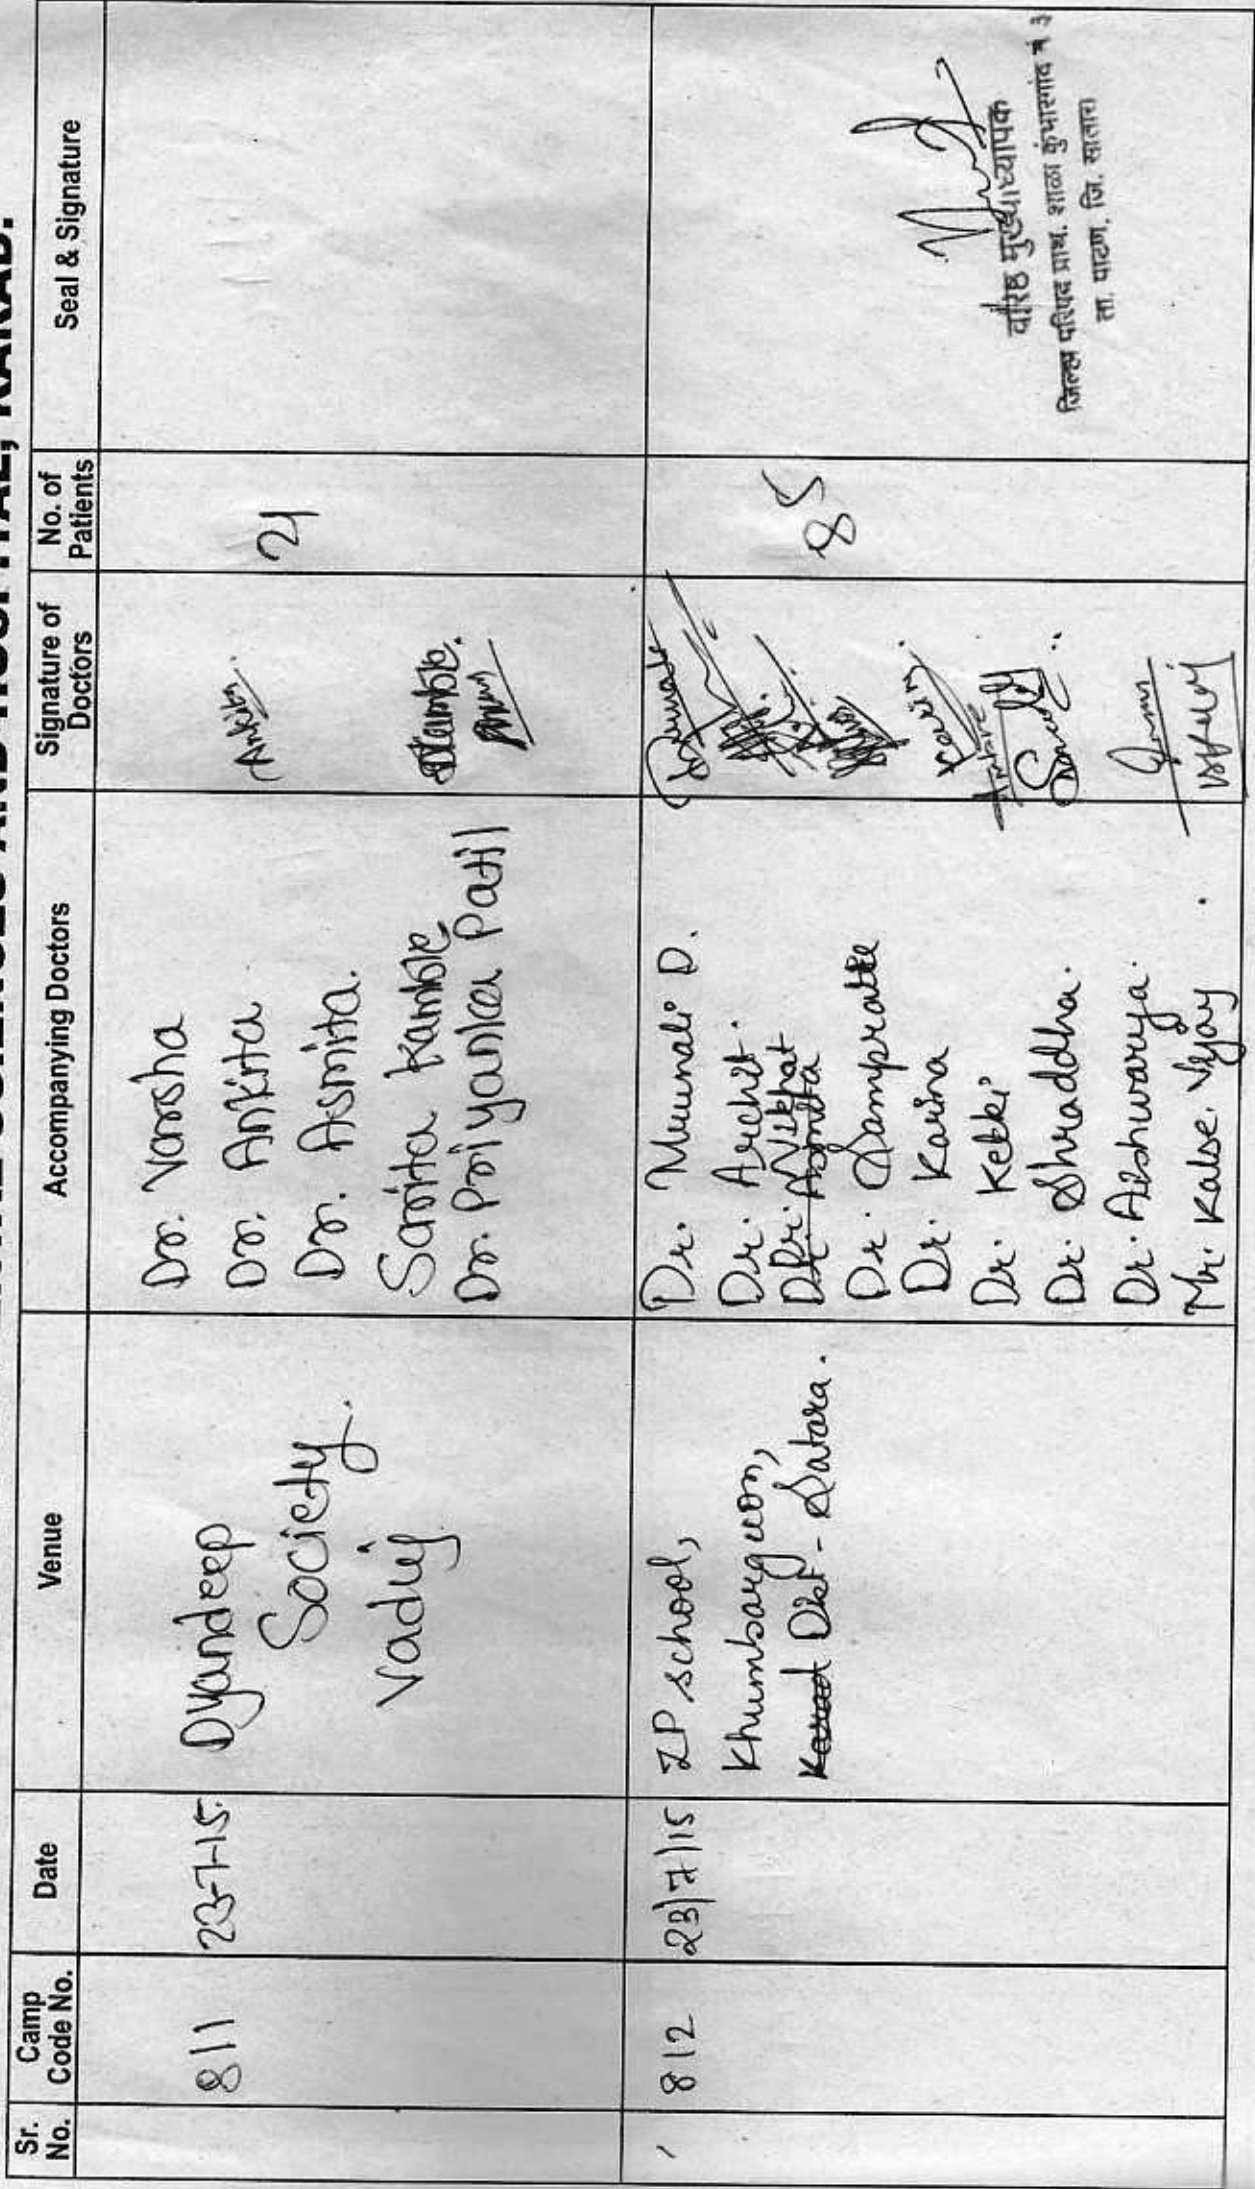 AND HOSPITAL, KARAD.
Sr. No.
Camp Code No.
Date
Venue
Accompanying Doctors
Signature of Doctors
No. of Patients
Seal & Signature
811
23-7-15.
Dyandeep
Society.
Vaduj
Dr. Varsha
Dr. Ankita
Dr. Asmita.
Sarita Kamble
Dr. Priyanka Patil
Ankita
Kamble.
21
812
23/7/15
ZP school,
Khumbargaon,
Karad Dist - Satara.
Dr. Mrunali D.
Dr. Archit.
Dr. Nikhat
Dr. Asmita
Dr. Sampratee
Dr. Karina
Dr. Ketki
Dr. Shraddha.
Dr. Aishwarya.
Mr. Kalse. Vijay.
Karina.
85
वरिष्ठ मुख्याध्यापक
जिल्हा परिषद प्राथ. शाळा कुंभारगांव नं ३
ता. पाटण, जि. सातारा